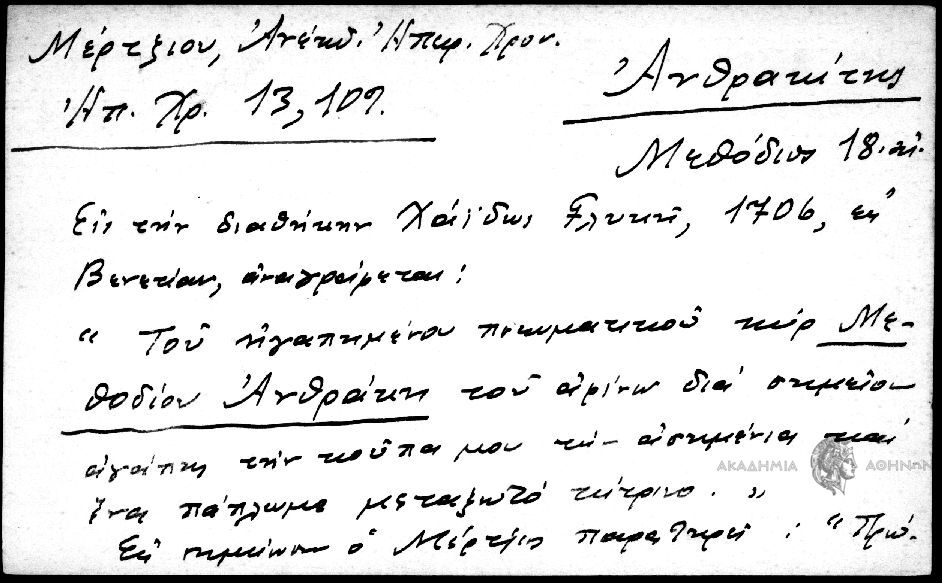 Μέρτζιου, Ἀνέκδ. Ἠπειρ. Χρον.
Ἠπ. Χρ. 13, 109.
Ἀνθρακίτης
Μεθόδιος 18. αἰ.
Εἰς τὴν διαθήκην Χάϊδως Γλυκῆ, 1706, ἐν
Βενετίᾳ, ἀναγράφεται:
“ Τοῦ ἠγαπημένου πνευματικοῦ κὺρ Με-
θοδίου Ἀνθράκη τοῦ ἀφίνω διά σημεῖον
ἀγάπης τὴν κοῦπα μου τὴν ἀσημένια καί
ἕνα πάπλωμα μεταξωτό κίτρινο. „
Ἐν σημειώσει ὁ Μέρτζιος παρατηρεῖ: “ Πρό-
ΑΚΑΔΗΜΙΑ ΑΘΗΝΩΝ